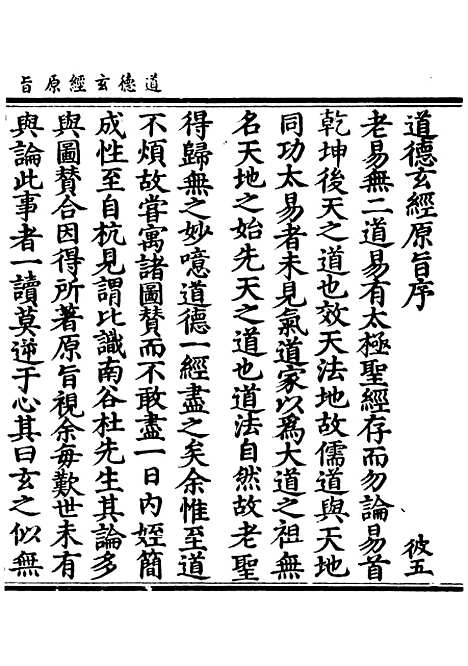 道德玄經原旨
道德玄經原旨序　彼五
老易無二道易有太極聖經存而勿論易首
乾坤後天之道也效天法地故儒道與天地
同功太易者未見氣道家以為大道之祖無
名天地之始先天之道也道法自然故老聖
得歸無之妙噫道德一經盡之矣余惟至道
不煩故甞寓諸圖贊而不敢盡一日內姪簡
成性至自杭見謂比識南谷杜先生其論多
與圖贊合因得所著原旨視余每歎世未有
與論此事者一讀莫逆于心其曰玄之似無